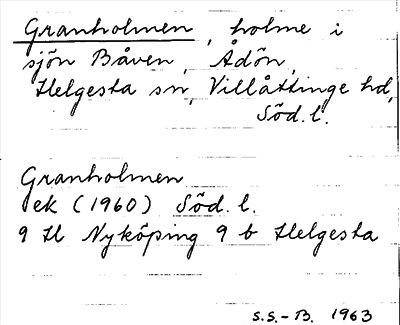 Granholmen, holme i
sjön Båven, Ådön,
Helgesta sn, Villåttinge hd,
Söd. l.
Granholmen
ek (1960) Söd. l.
9 H Nyköping 9 b Helgesta
S.S.-B. 1963